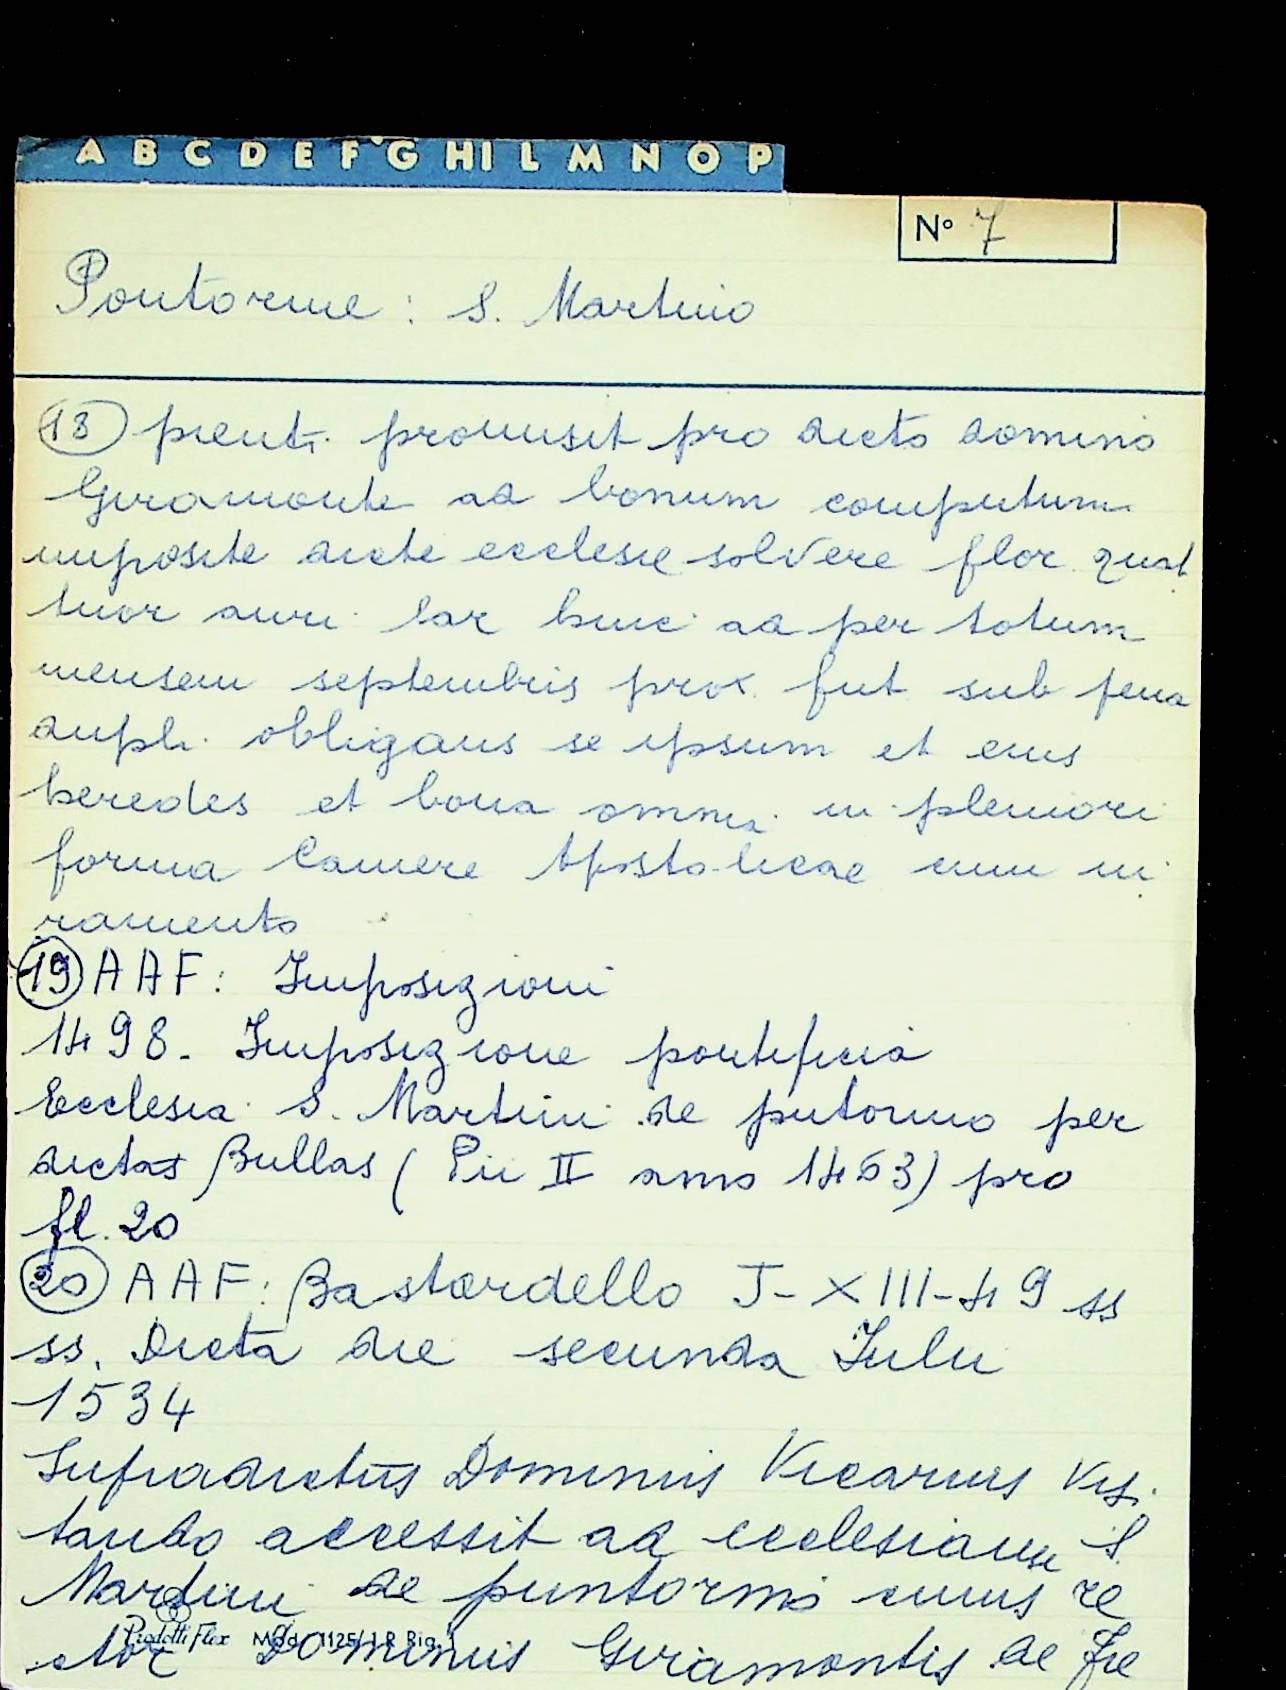 A B C D E F G HI L M N O P
N° 7
Pontorme: S. Martino
(18) pienti promisit pro dicto domino
Giramonte ad bonum computum
imposite dicte ecclesie solvere flor. quat
tuor auri lar hinc ad per totum
mensem septembris prox. fut sub pena
dupli. obligans se ipsum et eius
heredes et bona omnia in pleniori
forma Camere Apostolicae cum iu
ramento
(19) AAF: Imposizioni
1498. Imposizione pontificia
Ecclesia S. Martini de puntormo per
dictas Bullas (Pii II anno 1463) pro
fl. 20
(20) AAF: Bastardello J-XIII-49 ss
ss. Dicta die secunda Iulii
1534
Infradictus Dominus Vicarius visi
tando accessit ad ecclesiam S.
Martini de puntormo cuius re
ctor Dominus Giramontis de Fre
Prodotti Flex Mod. 1125/I.R. Rig. 1